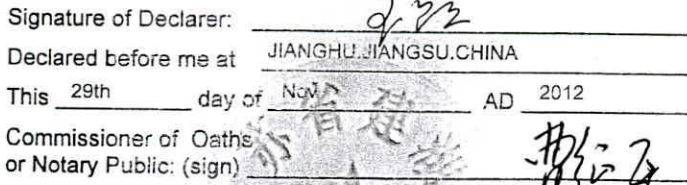 Signature of Declarer:
Declared before me at JIANGHU.JIANGSU.CHINA
This 29th day of Nov AD 2012
Commissioner of Oaths
or Notary Public: (sign)
省建